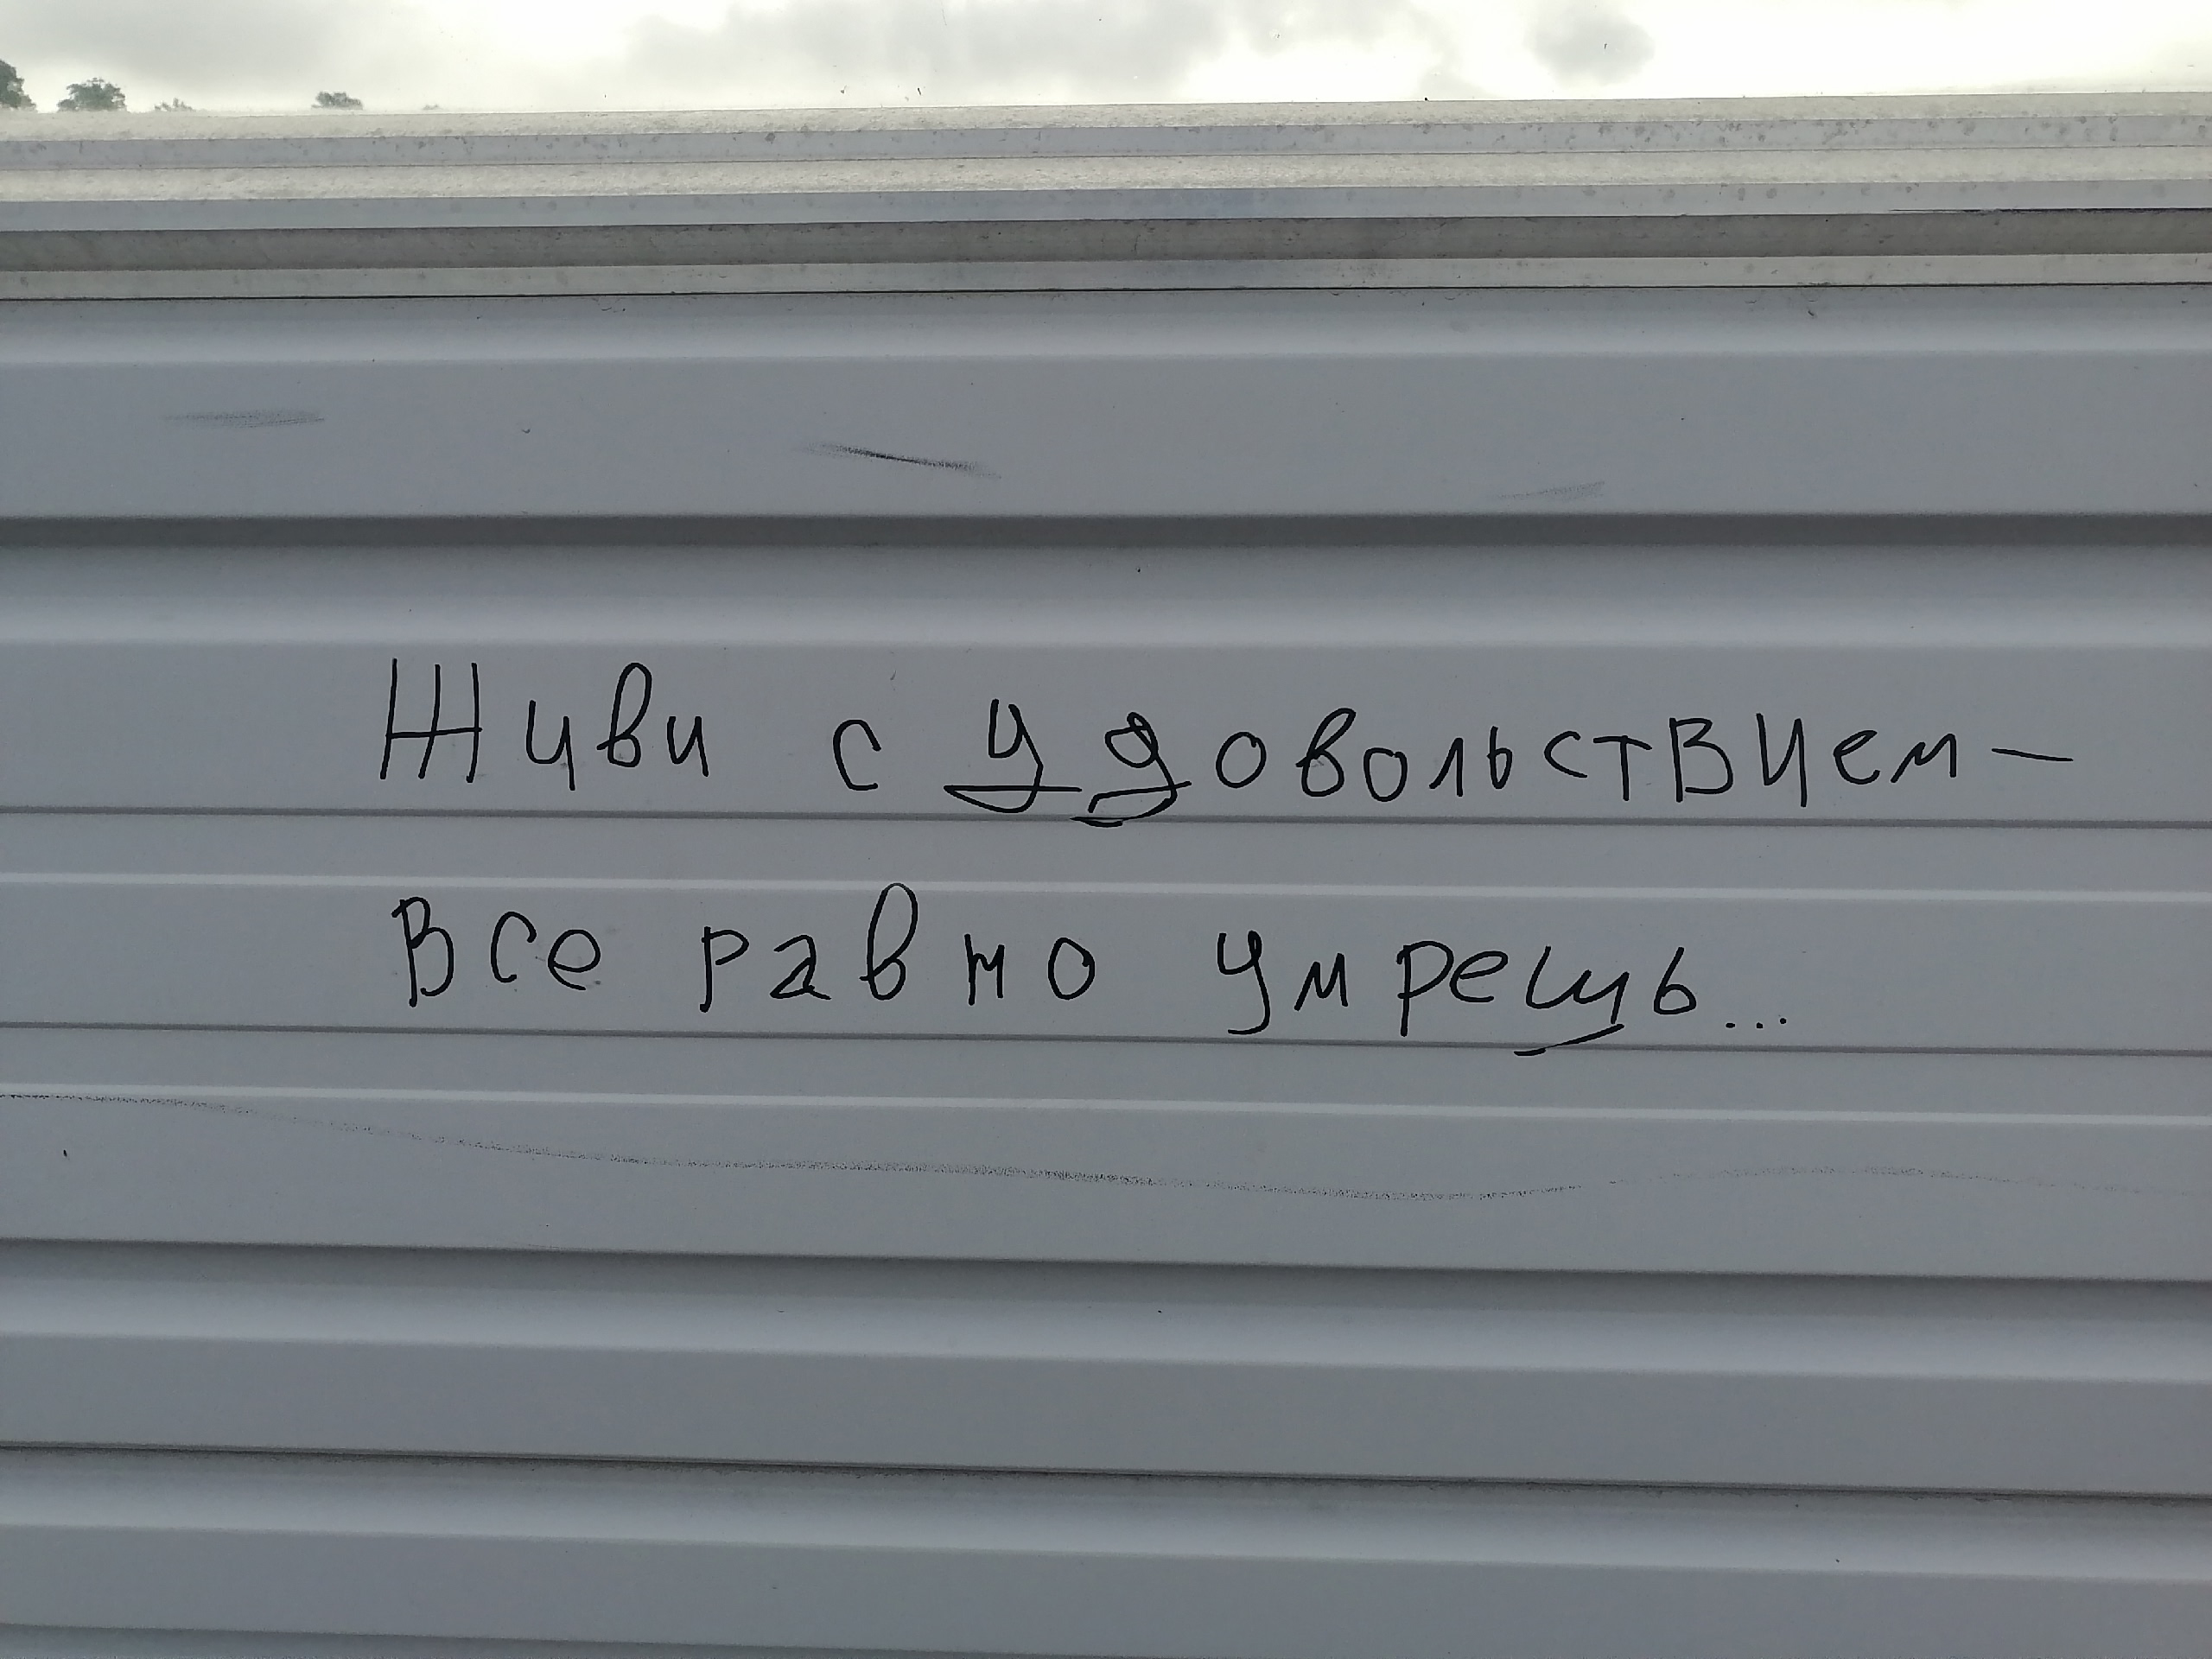 Живи с удовольствием —
Все равно умрешь...